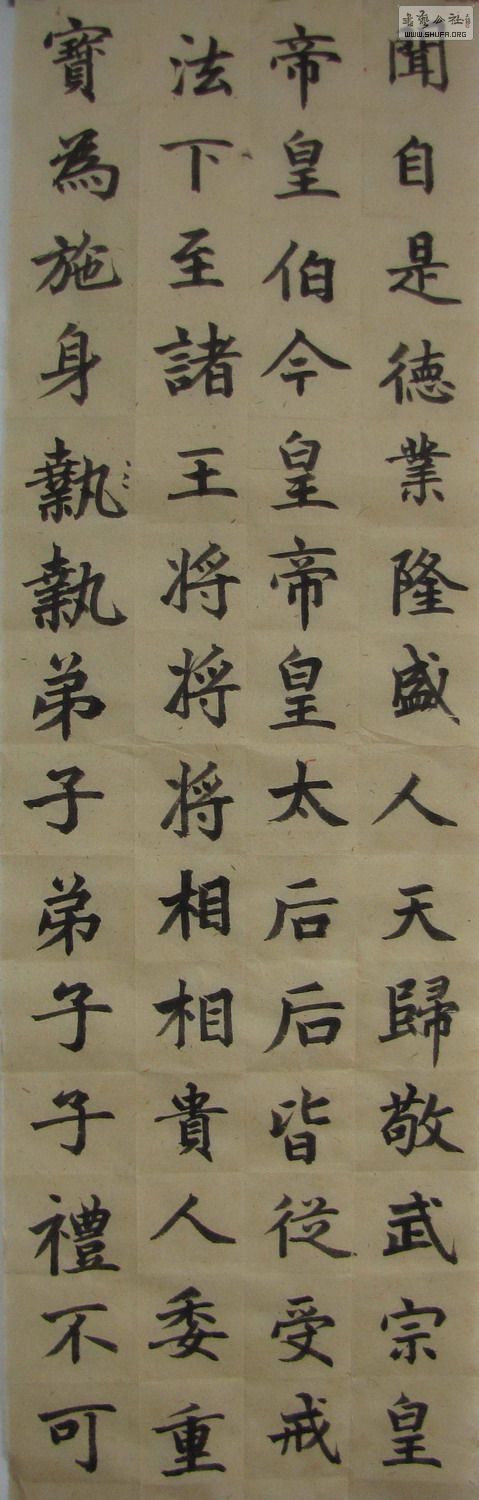 聞自是德業隆盛人天歸敬武宗皇
帝皇伯今皇帝皇太后后皆從受戒
法下至諸王将将将相相貴人委重
寶為施身執執弟子弟子子禮不可
書藝公社
WWW.SHUFA.ORG